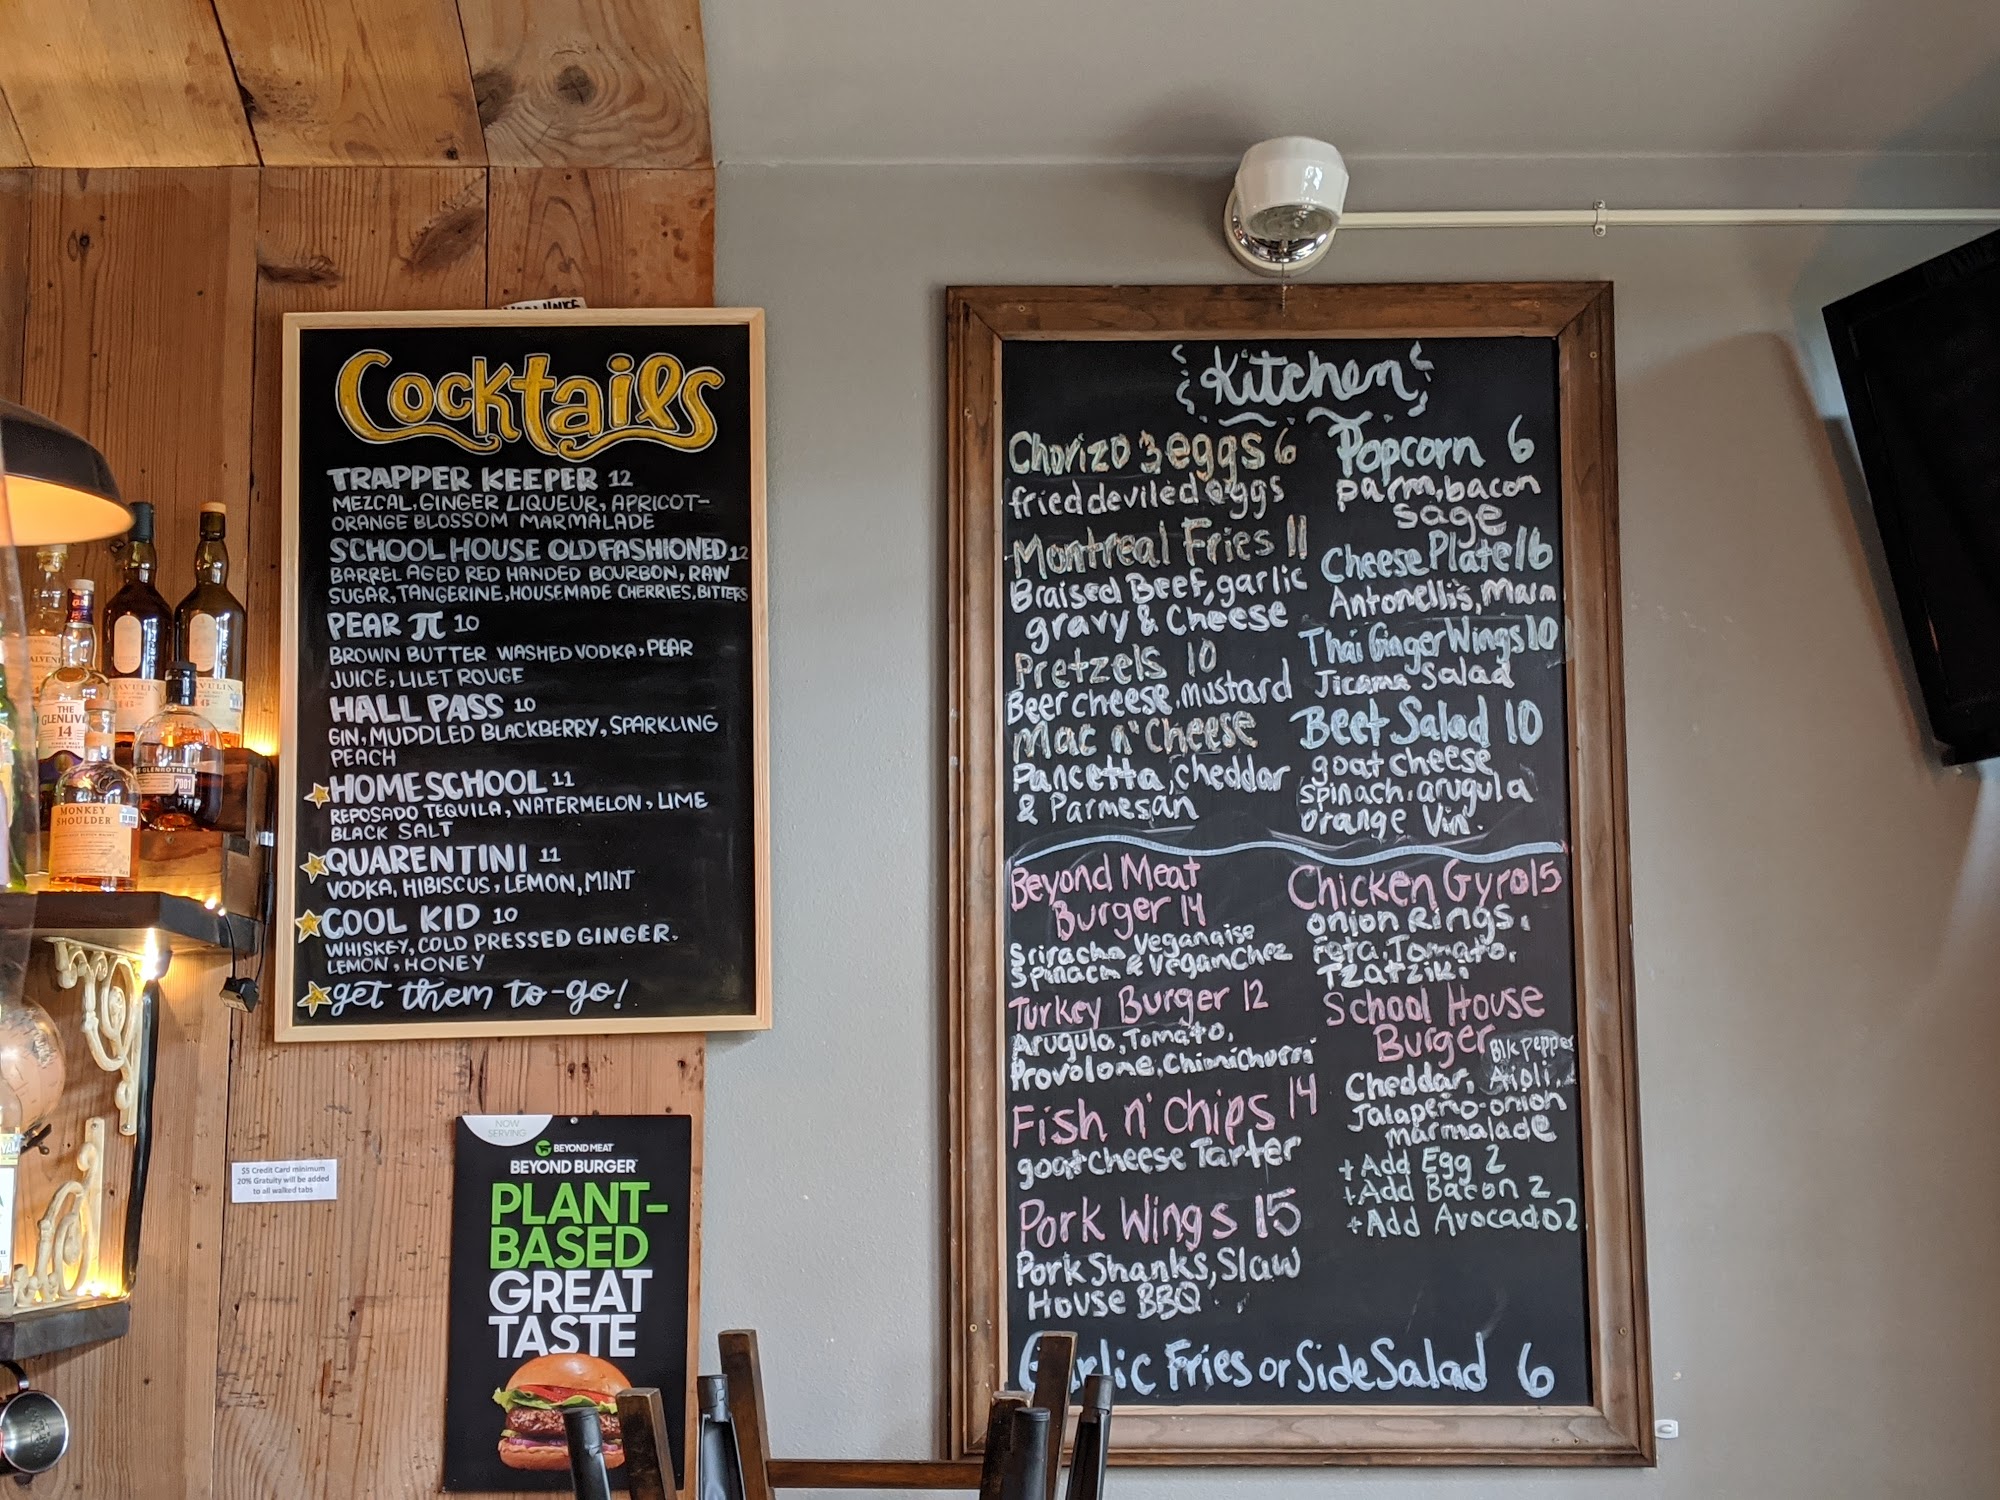 Cocktails
TRAPPER KEEPER 12
MEZCAL, GINGER LIQUEUR, APRICOT-
ORANGE BLOSSOM MARMALADE
SCHOOL HOUSE OLD FASHIONED 12
BARREL AGED RED HANDED BOURBON, RAW
SUGAR, TANGERINE, HOUSEMADE CHERRIES, BITTERS
PEAR π 10
BROWN BUTTER WASHED VODKA, PEAR
JUICE, LILET ROUGE
HALL PASS 10
GIN, MUDDLED BLACKBERRY, SPARKLING
PEACH
HOME SCHOOL 11
REPOSADO TEQUILA, WATERMELON, LIME
BLACK SALT
QUARENTINI 11
VODKA, HIBISCUS, LEMON, MINT
COOL KID 10
WHISKEY, COLD PRESSED GINGER.
LEMON, HONEY
get them to-go!
Kitchen
Chorizo 3 eggs 6
fried deviled eggs
Montreal Fries 11
Braised Beef, garlic
gravy & Cheese
Pretzels 10
Beer cheese, mustard
Mac n' Cheese
Pancetta, cheddar
& Parmesan
Popcorn 6
parm, bacon
sage
Cheese Plate 16
Antonelli's, Marm
Thai Ginger Wings 10
Jicama Salad
Beet Salad 10
goat cheese
spinach, arugula
orange Vin.
Beyond Meat
Burger 14
Sriracha Veganaise
Spinach & Vegan Chez
Turkey Burger 12
Arugula, Tomato,
Provolone, Chimichurri
Fish n' Chips 14
goat cheese Tarter
Pork Wings 15
Pork Shanks, Slaw
House BBQ
Chicken Gyro 15
onion Rings,
Feta, Tomato,
Tzatziki
School House
Burger
Blk pepper
Cheddar, Aioli,
Jalapeño-onion
marmalade
+ Add Egg 2
+ Add Bacon 2
+ Add Avocado 2
Garlic Fries or Side Salad 6
$5 Credit Card minimum
20% Gratuity will be added
to all walked tabs
NOW
SERVING
BEYOND MEAT
BEYOND BURGER
PLANT-
BASED
GREAT
TASTE
THE
GLENLIV
14
MONKEY
SHOULDER
GLENROTHES
2001
AVULIN
16
VULIN
16